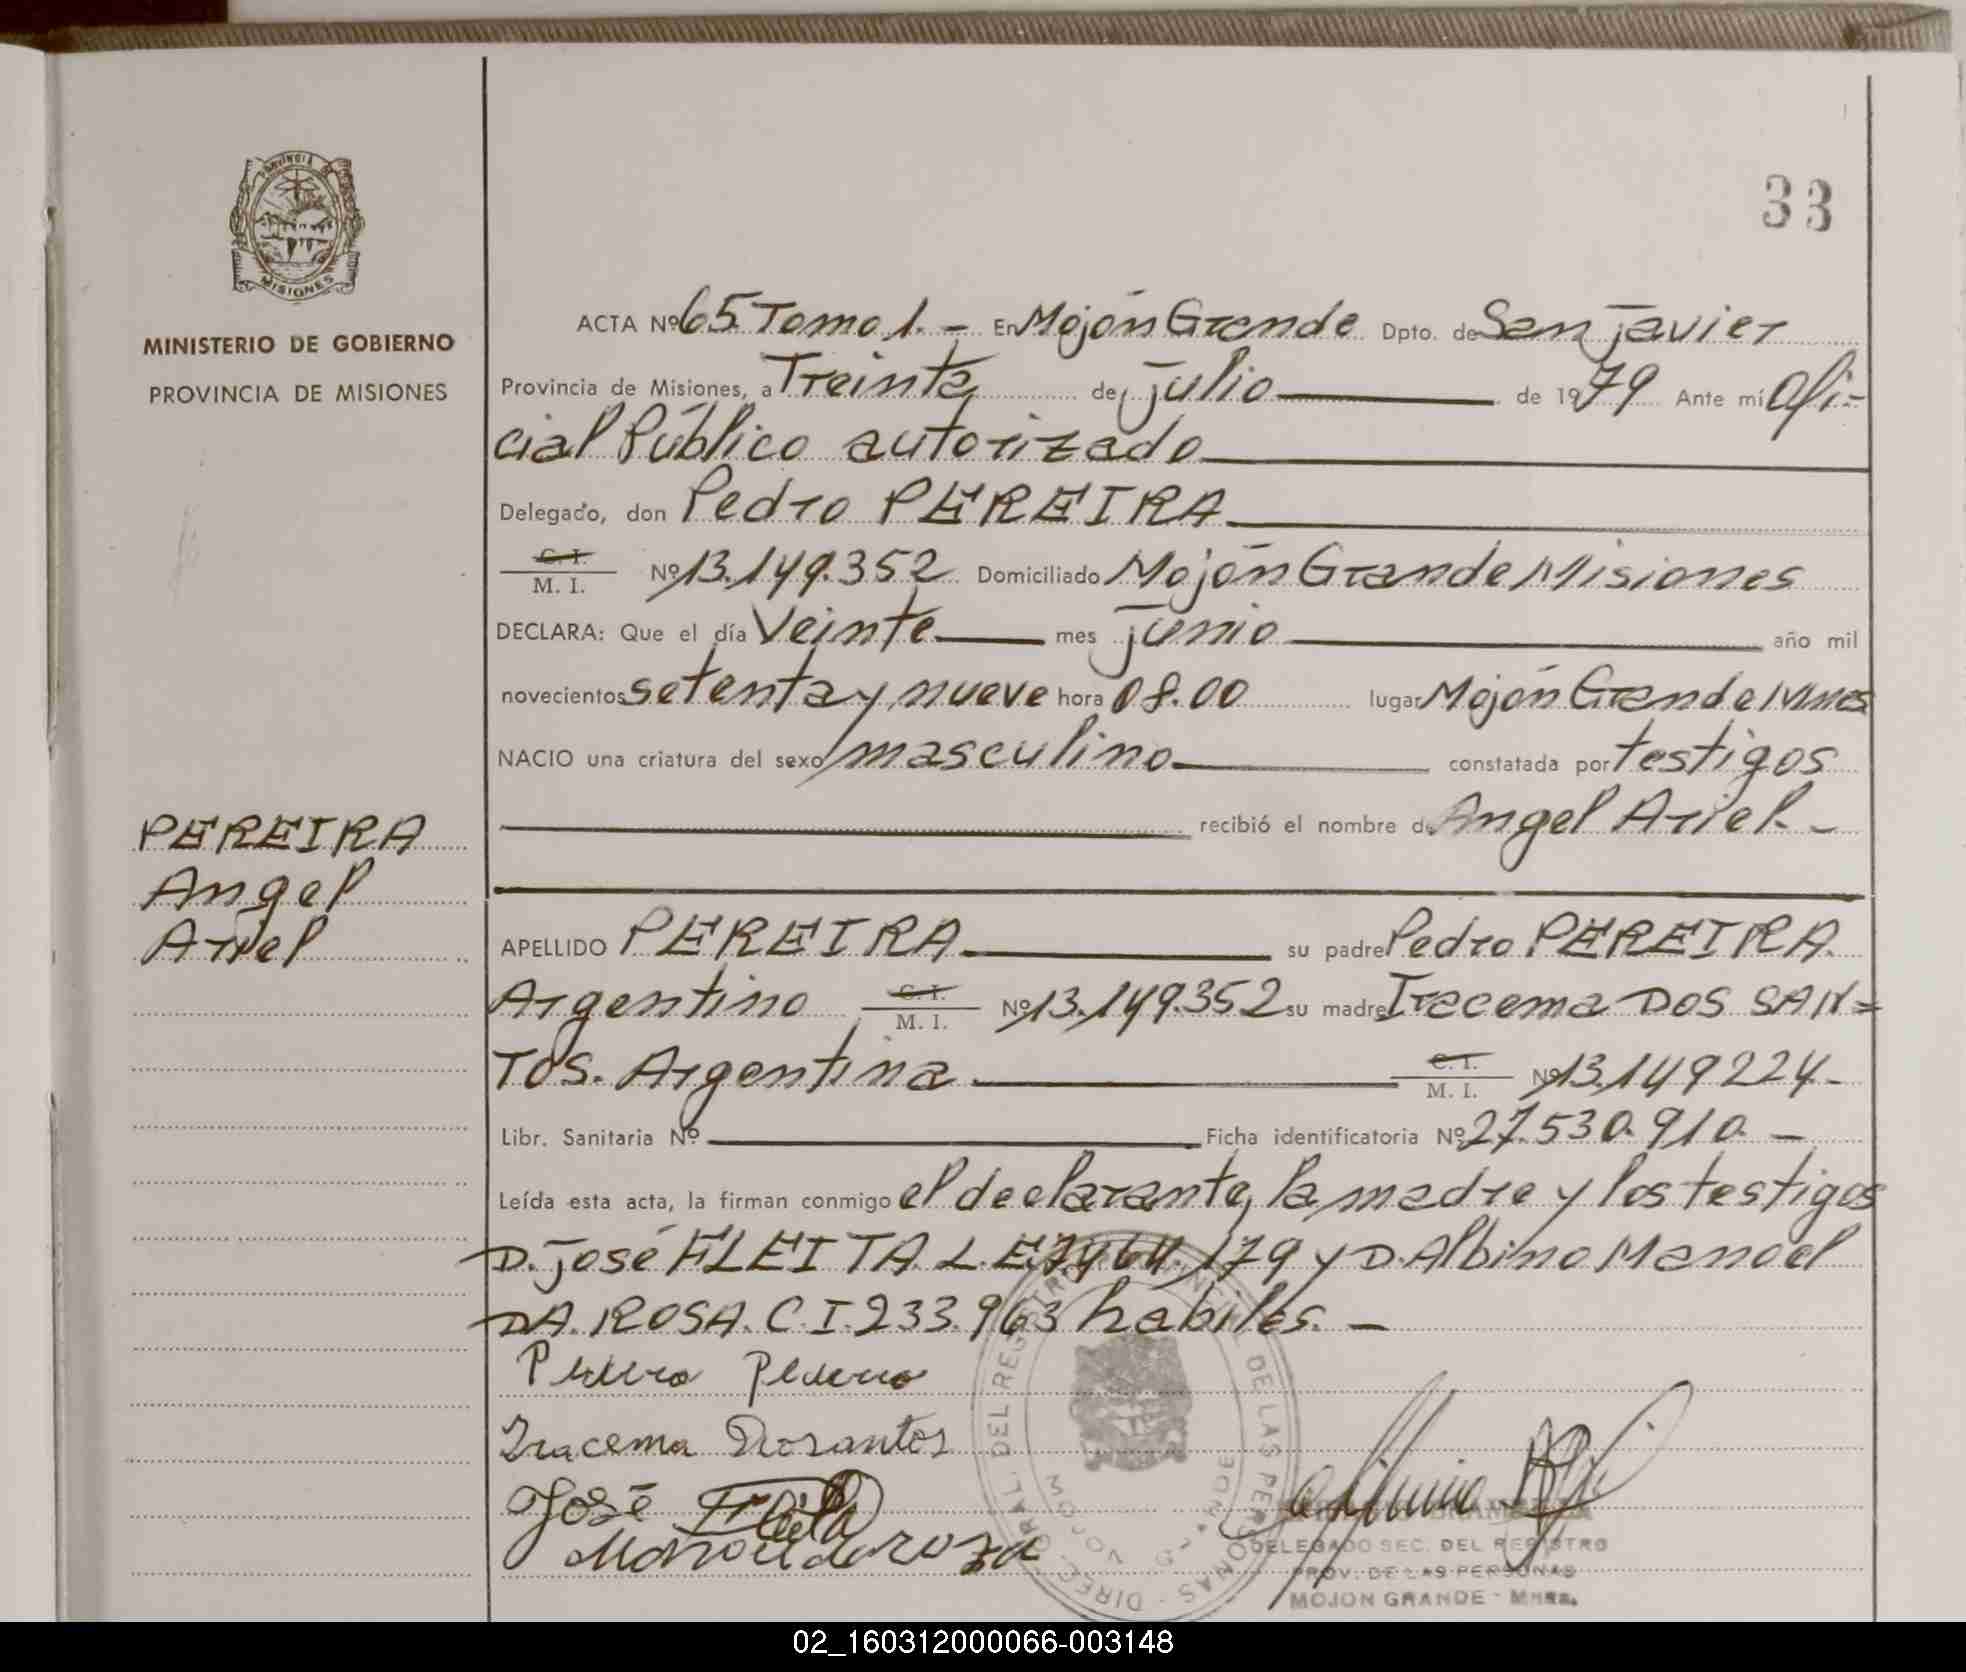 33
PROVINCIA DE
MISIONES
MINISTERIO DE GOBIERNO
PROVINCIA DE MISIONES
ACTA Nº 65 Tomo 1. - En Mojón Grande Dpto. de San Javier
Provincia de Misiones, a Treinta de julio de 1979 Ante mí Ofi-
cial Público autorizado
Delegado, don Pedro PEREIRA
C. I.
M. I. Nº 13.149.352 Domiciliado Mojón Grande Misiones
DECLARA: Que el día Veinte mes junio año mil
novecientos setenta y nueve hora 08.00 lugar Mojón Grande Mnes
NACIO una criatura del sexo masculino constatada por testigos
recibió el nombre de Angel Ariel -
PEREIRA
Angel
Ariel
APELLIDO PEREIRA su padre Pedro PEREIRA.
Argentino C. I. M. I. Nº 13.149.352 su madre Iracema DOS SAN=
TOS. Argentina C. I. M. I. Nº 13.149224-
Libr. Sanitaria Nº Ficha identificatoria Nº 27.530.910. -
Leída esta acta, la firman conmigo el declarante, la madre y los testigos
D. José FLEITA. L.E. 7.464.179 y D. Albino Manoel
DA. ROSA. C.I. 233.963 habiles. -
Iracema Dosantos
José Fleita
Manoel da roza
DIREC. GRAL. DEL REGISTRO DE LAS PERSONAS
MOJON GRANDE
DELEGADO SEC. DEL REGISTRO
PROV. DE LAS PERSONAS
MOJON GRANDE - Mnes.
02_160312000066-003148